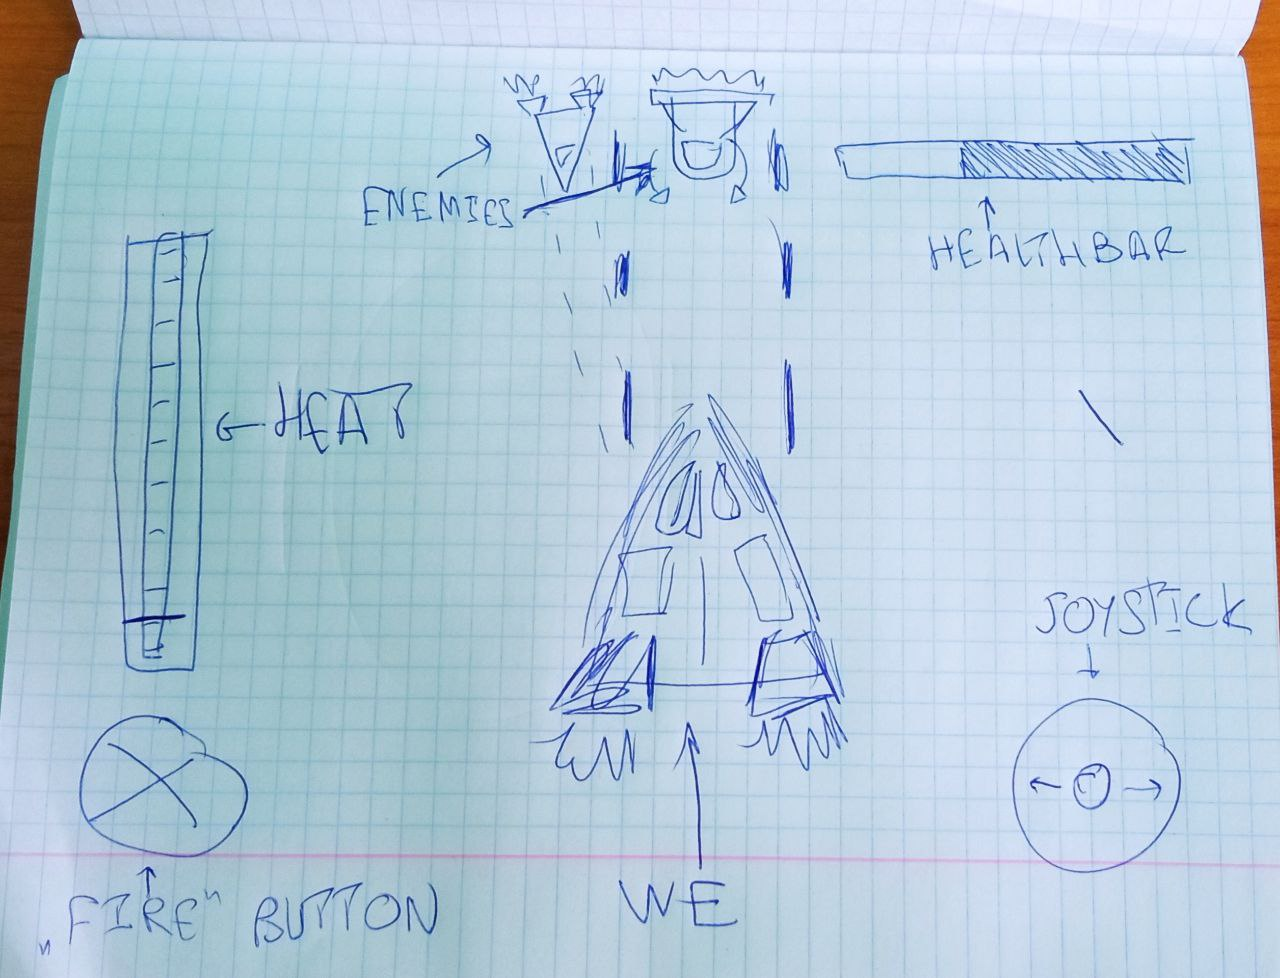 ENEMIES
HEALTHBAR
HEAT
JOYSTICK
„FIRE" BUTTON
WE